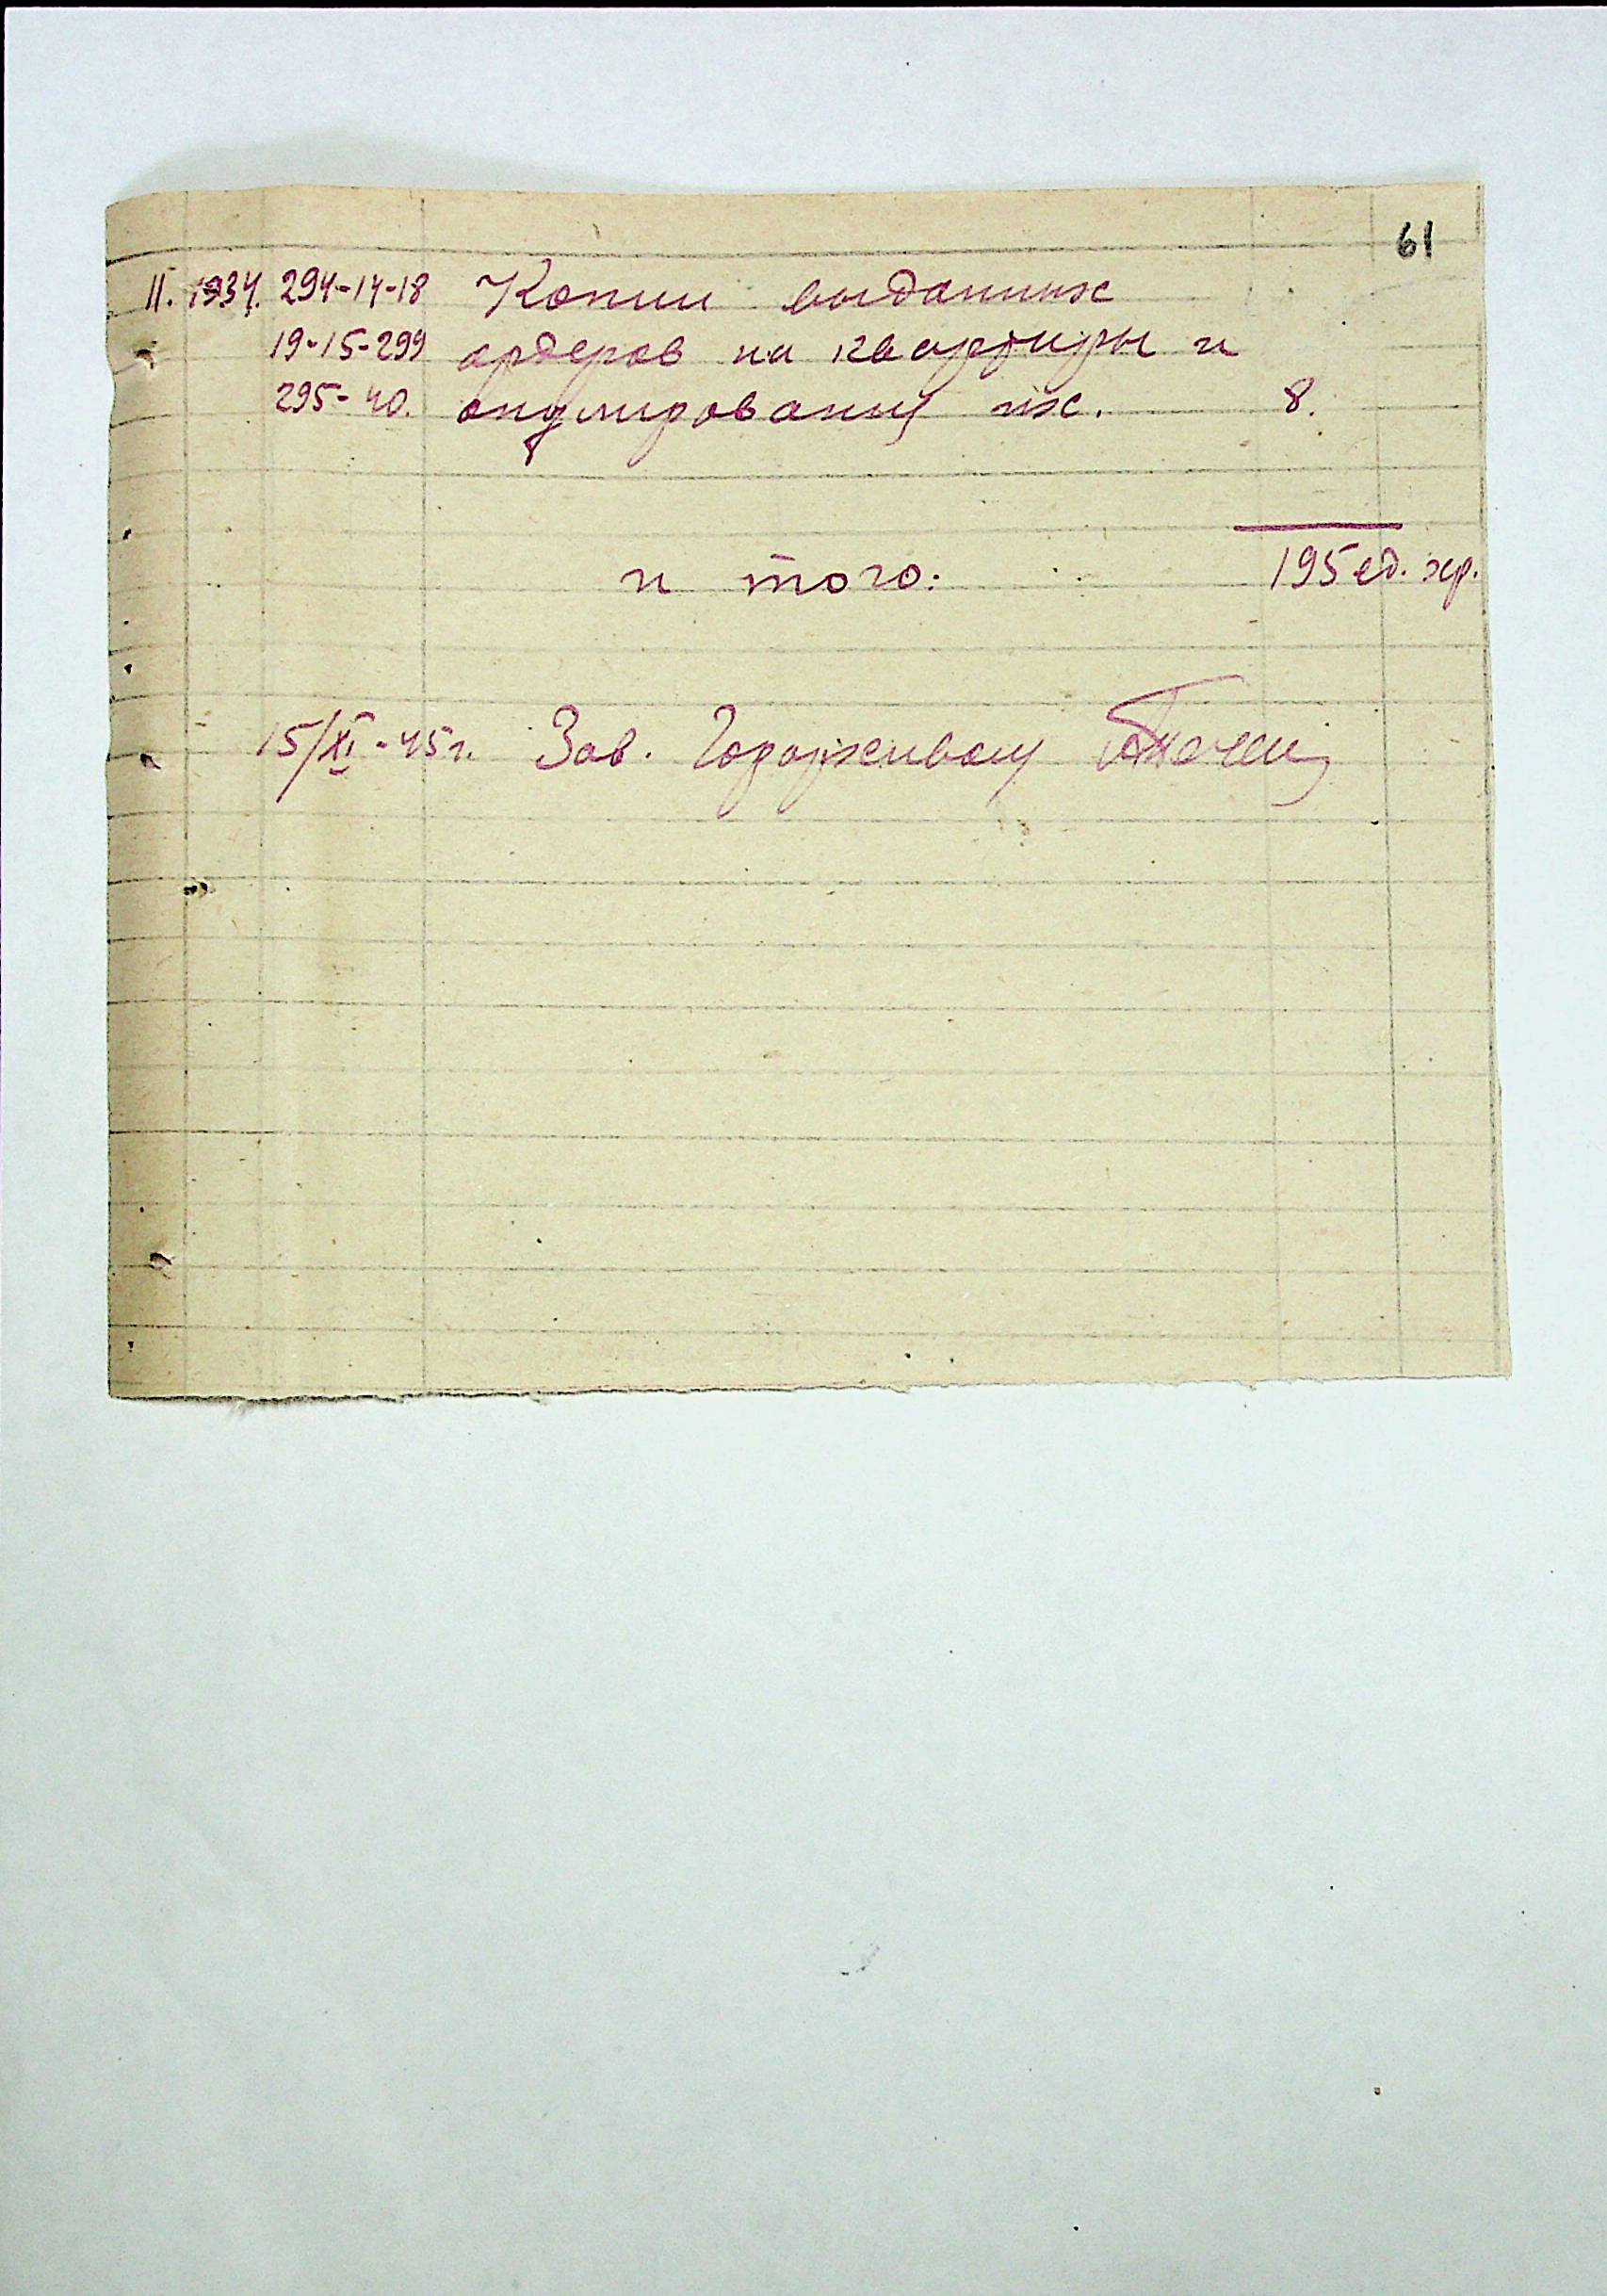 61
11. 1934. 294-14-18 Копии выданных
19-15-299 ордеров на квартиры и
295-40. анулирования их. 8.
и того: 195 ед. хр.
15/XI-45г. Зав.